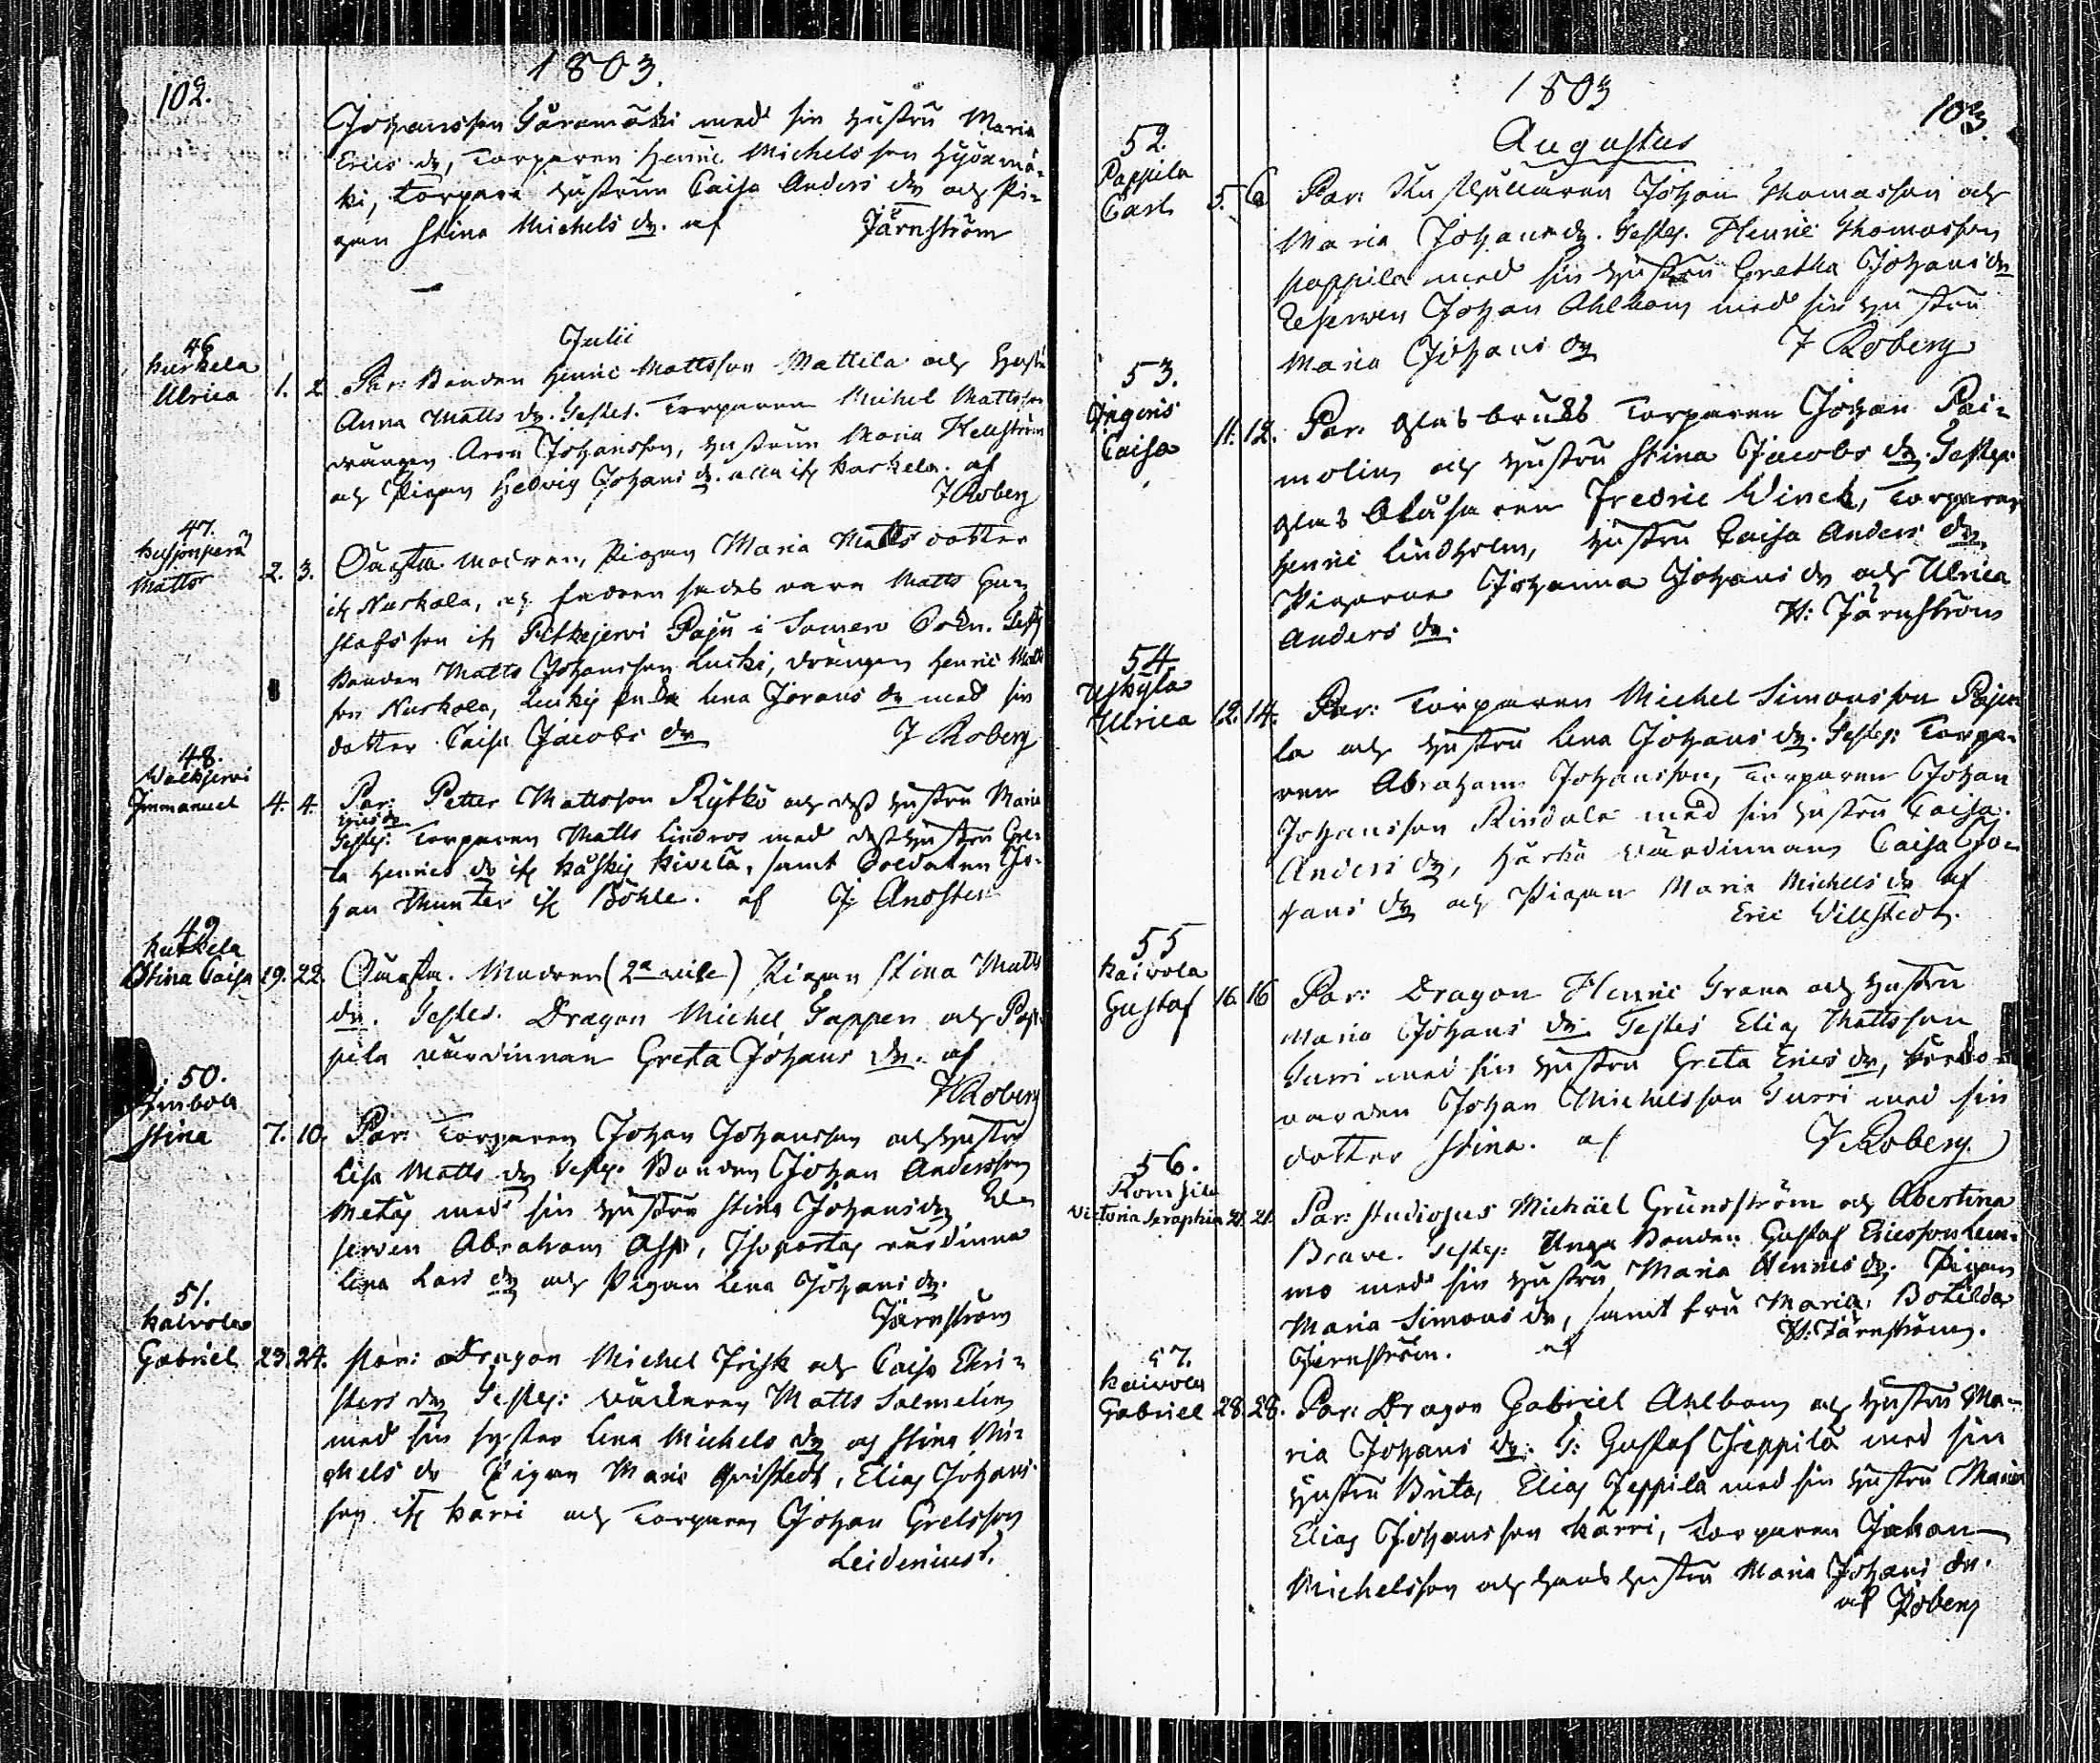 102.
1803.
Johansson Järamäki med sin hustru Maria
Erics dr, Torparen Henric Michelsson Hyöxmä-
ki, Torpare hustrun Caisa Anders dr och Pi-
gan Stina Michels dr. af Järnström
Julii
46
Kurkela
Ulrica 1. 2.
Par: Bonden Henric Mattsson Mattila och hustr.
Anna Matts dr. Testes. Torparen Michel Mattsson
drängen Aron Johansson, hustrun Maria Hellström
och Pigan Hedvig Johans dr. alla ifr. Karkela. af
J Roberg
47.
Matts 2. 3.
Oäckta. Modren, Pigan Maria Matts dotter
ifr Nurkola, och fadren sades vara Matts Gu-
stafsson ifr Pitkejervi Paju i Somero Sokn. Test.
Bonden Matts Johansson Lucki, drängen Henric Matts
son Nurkola, Enka Lena Jörans dr med sin
dotter Caisa Jacobs dr J Roberg
48.
Walkjervi
Immanuel 4. 4.
Par: Petter Mattsson Rytkö och dess hustru Maria
Erics dr
Testes: Torparen Matts Lindros med dess hustru Gre-
ta Henrics dr ifr Kivelä, samt Soldaten Jo-
han Munter ifr Böhle. af J:
49
Kutkila
Stina Caisa 19. 22.
Oäckta. Modren (2a vice) Pigan Stina Matts
dr. Testes. Dragon Michel Tappen och Pap-
pila värdinnan Greta Johans dr. af
J Roberg
50.
Stina 7. 10.
Par: Torparen Johan Johansson och hustru
Lisa Matts dr Testes. Bonden Johan Andersson
med sin hustru Stina Johans dr Re-
serven Abraham Asp, värdinna
Lena Lars dr och Pigan Lena Johans dr.
Järnström
51.
Kaivola
Gabriel 23. 24.
Par: Dragon Michel Frisk och Caisa Chri-
sters dr Testes: Matts Salmelin
med sin syster Lena Michels dr och Stina Mi-
chels dr Pigan Maria Qvistedt, Elias Johans-
son ifr Karri och Torparen Johan Grelsson
Leidenius
1803
103
Augustus
52.
Pappila
Carl 5. 6
Par: Johan Thomasson och
Maria Johans dr. Testes. Henric Thomasson
Pappila med sin hustru Gretha Johans dr
Reserven Johan Ahlbom med sin hustru
Maria Johans dr J Roberg
53.
Ingeris
Caisa 11. 12.
Par: Glasbruks Torparen Johan Pai-
molin och hustru Stina Jacobs dr. Testes:
Glas blåsaren Fredric Winck, Torparen
Henric Lindholm, hustru Caisa Anders dr
Pigorne Johanna Johans dr och Ulrica
Anders dr. H: Järnström
54.
Ulrica 12. 14.
Par: Torparen Michel Simonsson Paju
la och hustru Lena Johans dr. Testes: Torpa-
ren Abraham Johansson, Torparen Johan
Johansson Rindala med sin hustru Caisa
Anders dr, Härkä värdinnan Caisa Jo-
hans dr och Pigan Maria Michels dr af
Eric Willstedt.
55
Kaivola
Gustaf 16. 16
Par: Dragon Henric Grann och hustru
Maria Johans dr Testes Elias Mattsson
Surri med sin hustru Greta Erics dr, Kyrko-
varden Johan Michelsson Surri med sin
dotter Stina. af J Roberg
56.
Romsila
Victoria Seraphia 21. 21.
Par: Studiosus Michäel Grundström och Abertina
Brave. Testes: Unga Bonden Gustaf Ericsson Lem-
mo med sin hustru Maria Henrics dr. Pigan
Maria Simons dr, samt fru Maria Botilda
Jernström. af H: Järnström.
57.
Kaivola
Gabriel 28. 28.
Par: Dragon Gabriel Ahlbom och hustru Ma-
ria Johans dr. T: Gustaf Jeppilä med sin
hustru Brita, Elias Jeppilä med sin hustru Maria
Elias Johansson Kärri, Torparen Johan
Michelsson och hans hustru Maria Johans dr.
af Roberg